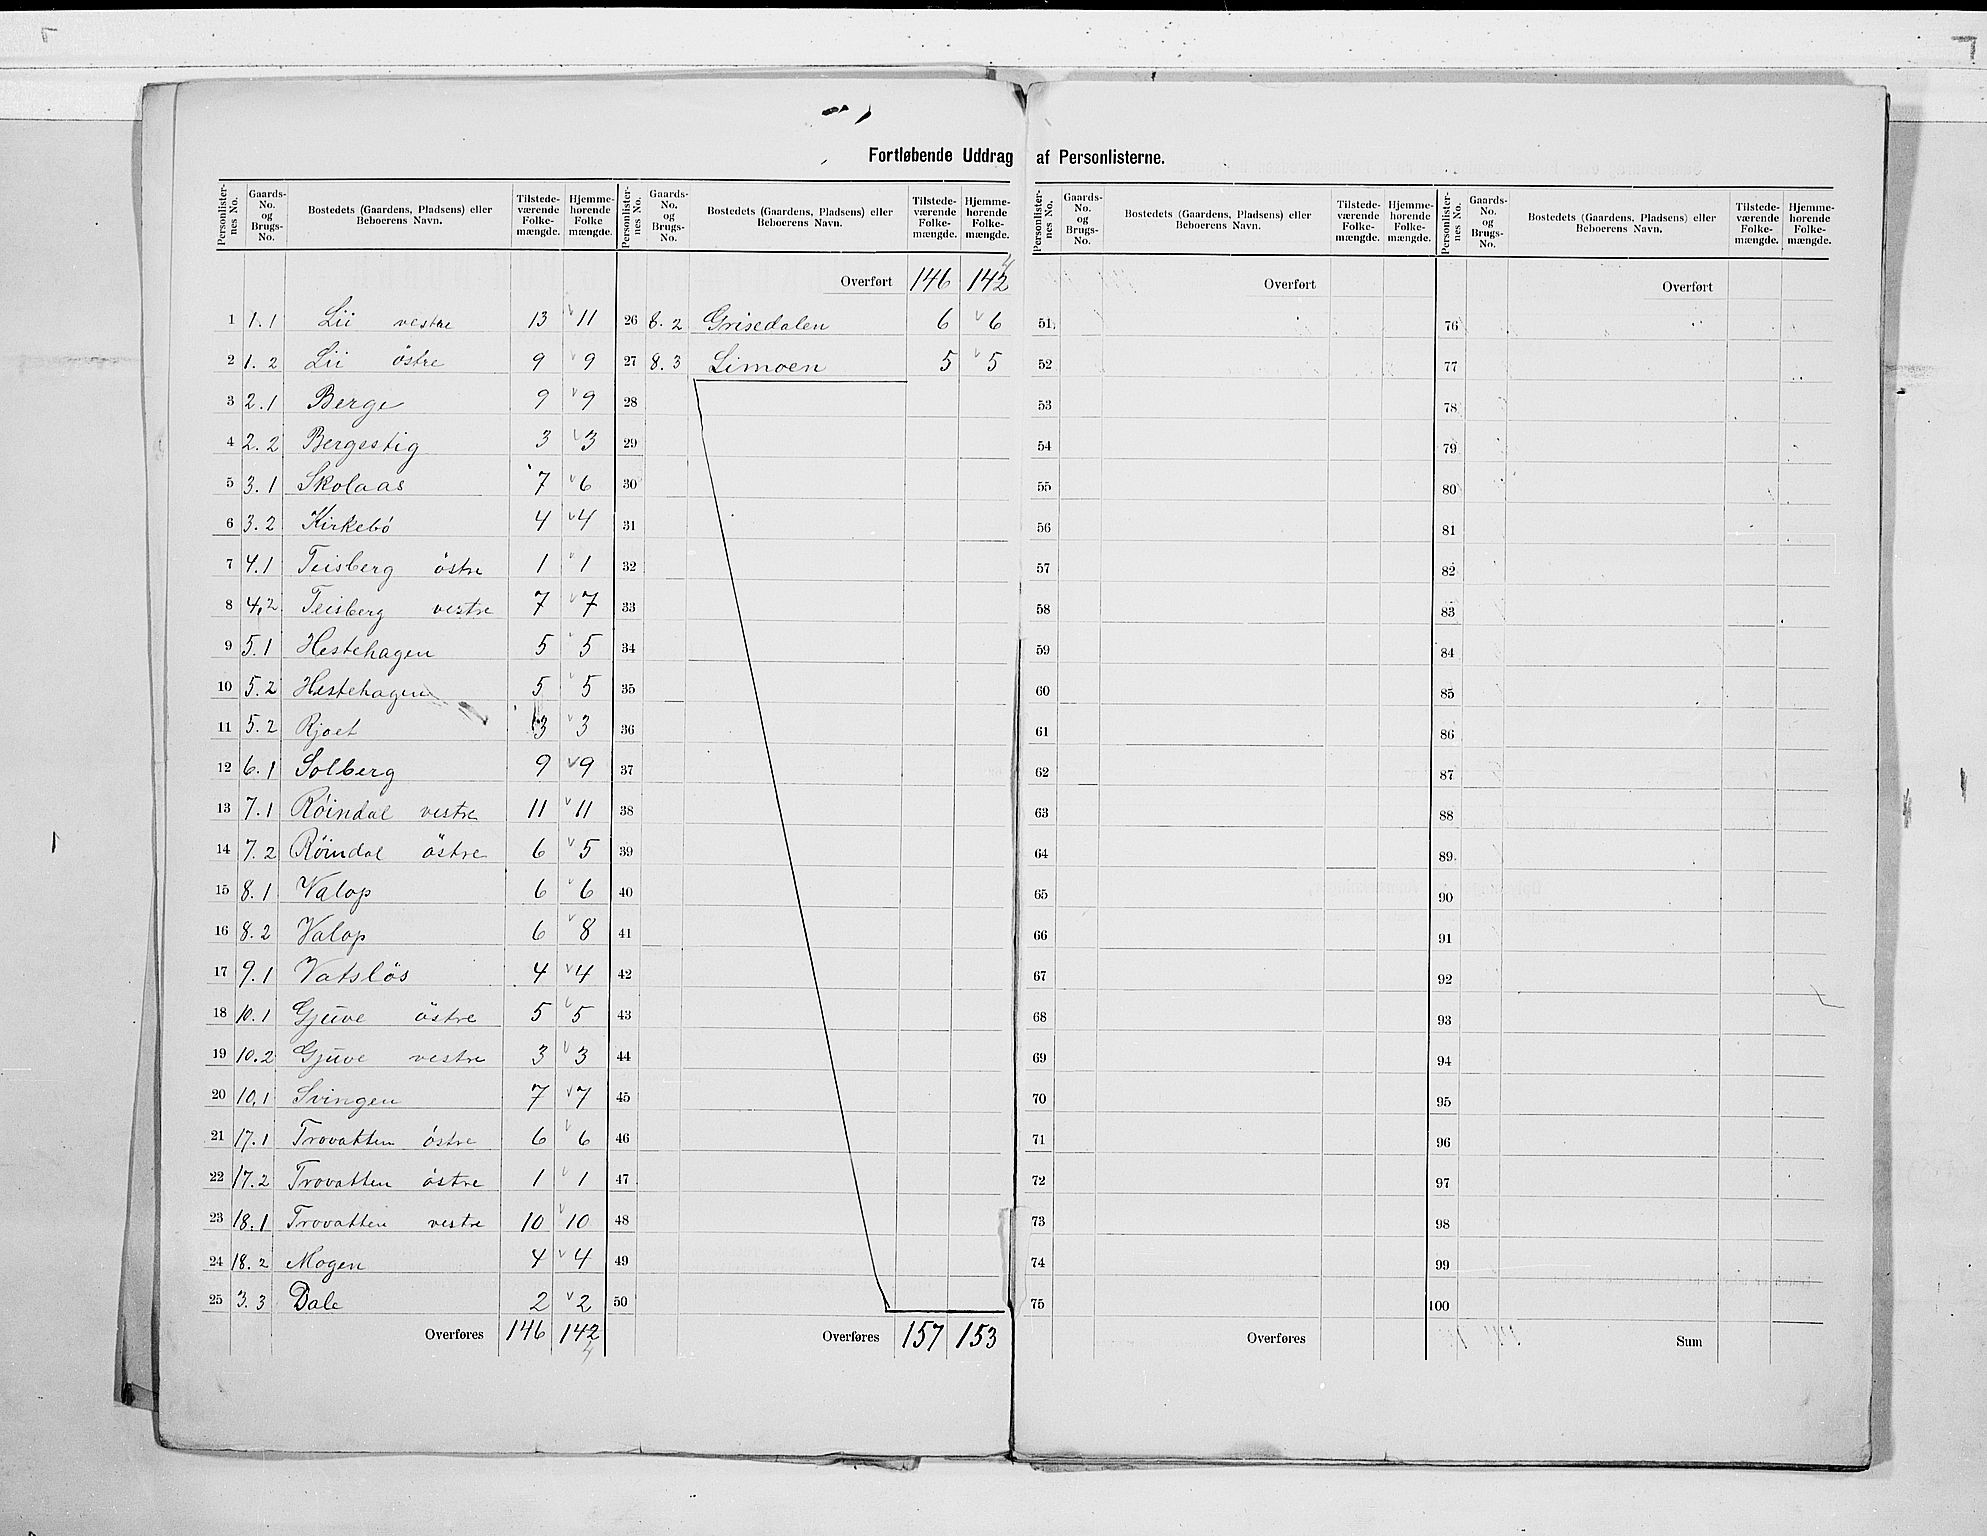 Fortløbende Uddrag af Personlisterne.
Personlister-nes No. | Gaards-No. og Brugs-No. | Bostedets (Gaardens, Pladsens) eller Beboerens Navn. | Tilstede-værende Folke-mængde. | Hjemme-hørende Folke mængde.
1 | 1.1 | Lii vestre | 13 | 11
2 | 1.2 | Lii östre | 9 | 9
3 | 2.1 | Berge | 9 | 9
4 | 2.2 | Bergestig | 3 | 3
5 | 3.1 | Skolaas | 7 | 6
6 | 3.2 | Kirkebö | 4 | 4
7 | 4.1 | Teisberg östre | 1 | 1
8 | 4.2 | Teisberg vestre | 7 | 7
9 | 5.1 | Hestehagen | 5 | 5
10 | 5.2 | Hestehagen | 5 | 5
11 | 5.2 | Rjoet | 3 | 3
12 | 6.1 | Solberg | 9 | 9
13 | 7.1 | Röindal vestre | 11 | 11
14 | 7.2 | Röindal östre | 6 | 5
15 | 8.1 | Valop | 6 | 6
16 | 8.2 | Valop | 6 | 8
17 | 9.1 | Vatslös | 4 | 4
18 | 10.1 | Gjuve östre | 5 | 5
19 | 10.2 | Gjuve vestre | 3 | 3
20 | 10.1 | Svingen | 7 | 7
21 | 17.1 | Trovatten östre | 6 | 6
22 | 17.2 | Trovatten östre | 1 | 1
23 | 18.1 | Trovatten vestre | 10 | 10
24 | 18.2 | Mogen | 4 | 4
25 | 3.3 | Dale | 2 | 2
Overføres | 146 | 142
4
Personlister-nes No. | Gaards-No. og Brugs-No. | Bostedets (Gaardens, Pladsens) eller Beboerens Navn. | Tilstede-værende Folke-mængde. | Hjemme-hørende Folke-mængde.
4
Overført | 146 | 142
26 | 8.2 | Grisedalen | 6 | 6
27 | 8.3 | Limoen | 5 | 5
28
29
30
31
32
33
34
35
36
37
38
39
40
41
42
43
44
45
46
47
48
49
50
Overføres | 157 | 153
Personlister-nes No. | Gaards-No. og Brugs-No. | Bostedets (Gaardens, Pladsens) eller Beboerens Navn. | Tilstede-værende Folke-mængde. | Hjemme-hørende Folke-mængde.
Overført
51
52
53
54
55
56
57
58
59
60
61
62
63
64
65
66
67
68
69
70
71
72
73
74
75
Overføres
Personlister-nes No. | Gaards-No. og Brugs-No. | Bostedets (Gaardens, Pladsens) eller Beboerens Navn. | Tilstede-værende Folke-mængde. | Hjemme-hørende Folke-mængde.
Overført
76
77
78
79
80
81
82
83
84
85
86
87
88
89
90
91
92
93
94
95
96
97
98
99
100
Sum